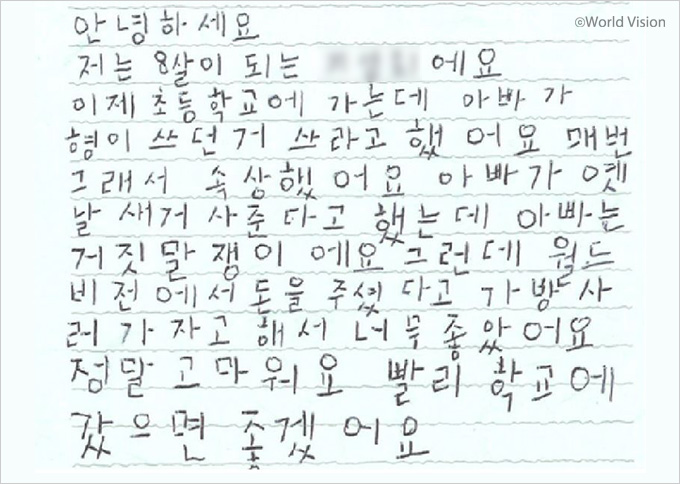 ©World Vision
안녕하세요
저는 8살이 되는 에요
이제 초등학교에 가는데 아빠가
형이 쓰던거 쓰라고 했어요 매번
그래서 속상했어요 아빠가 옛
날 새거 사준다고 했는데 아빠는
거짓말쟁이에요 그런데 월드
비전에서 돈을 주셨다고 가방사
러가자고 해서 너무 좋았어요
정말 고마워요 빨리 학교에
갔으면 좋겠어요